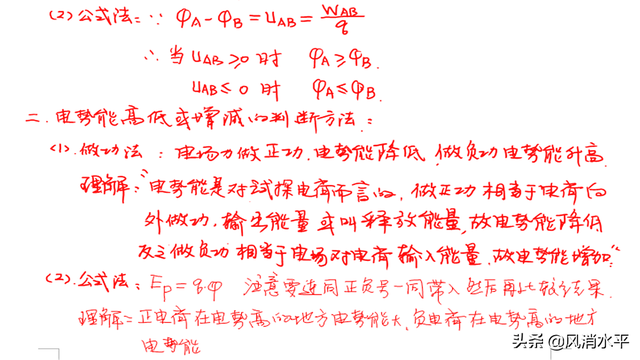 (2)公式法:∵ φA-φB=UAB=WAB/q
∴当UAB≥0时 φA≥φB.
UAB≤0时 φA≤φB.
二.电势能高低或增减的判断方法:
(1).做功法:电场力做正功.电势能降低.做负功电势能升高.
理解:"电势能是对试探电荷而言的,做正功相当于电荷向
外做功.输出能量或叫释放能量,故电势能降低
反之做负功相当于电场对电荷输入能量.故电势能增加"
(2).公式法:Ep=q·φ 注意要连同正负号一同带入然后再比较结果.
理解:正电荷在电势高的地方电势能大,负电荷在电势高的地方
电势能
头条@风消水平